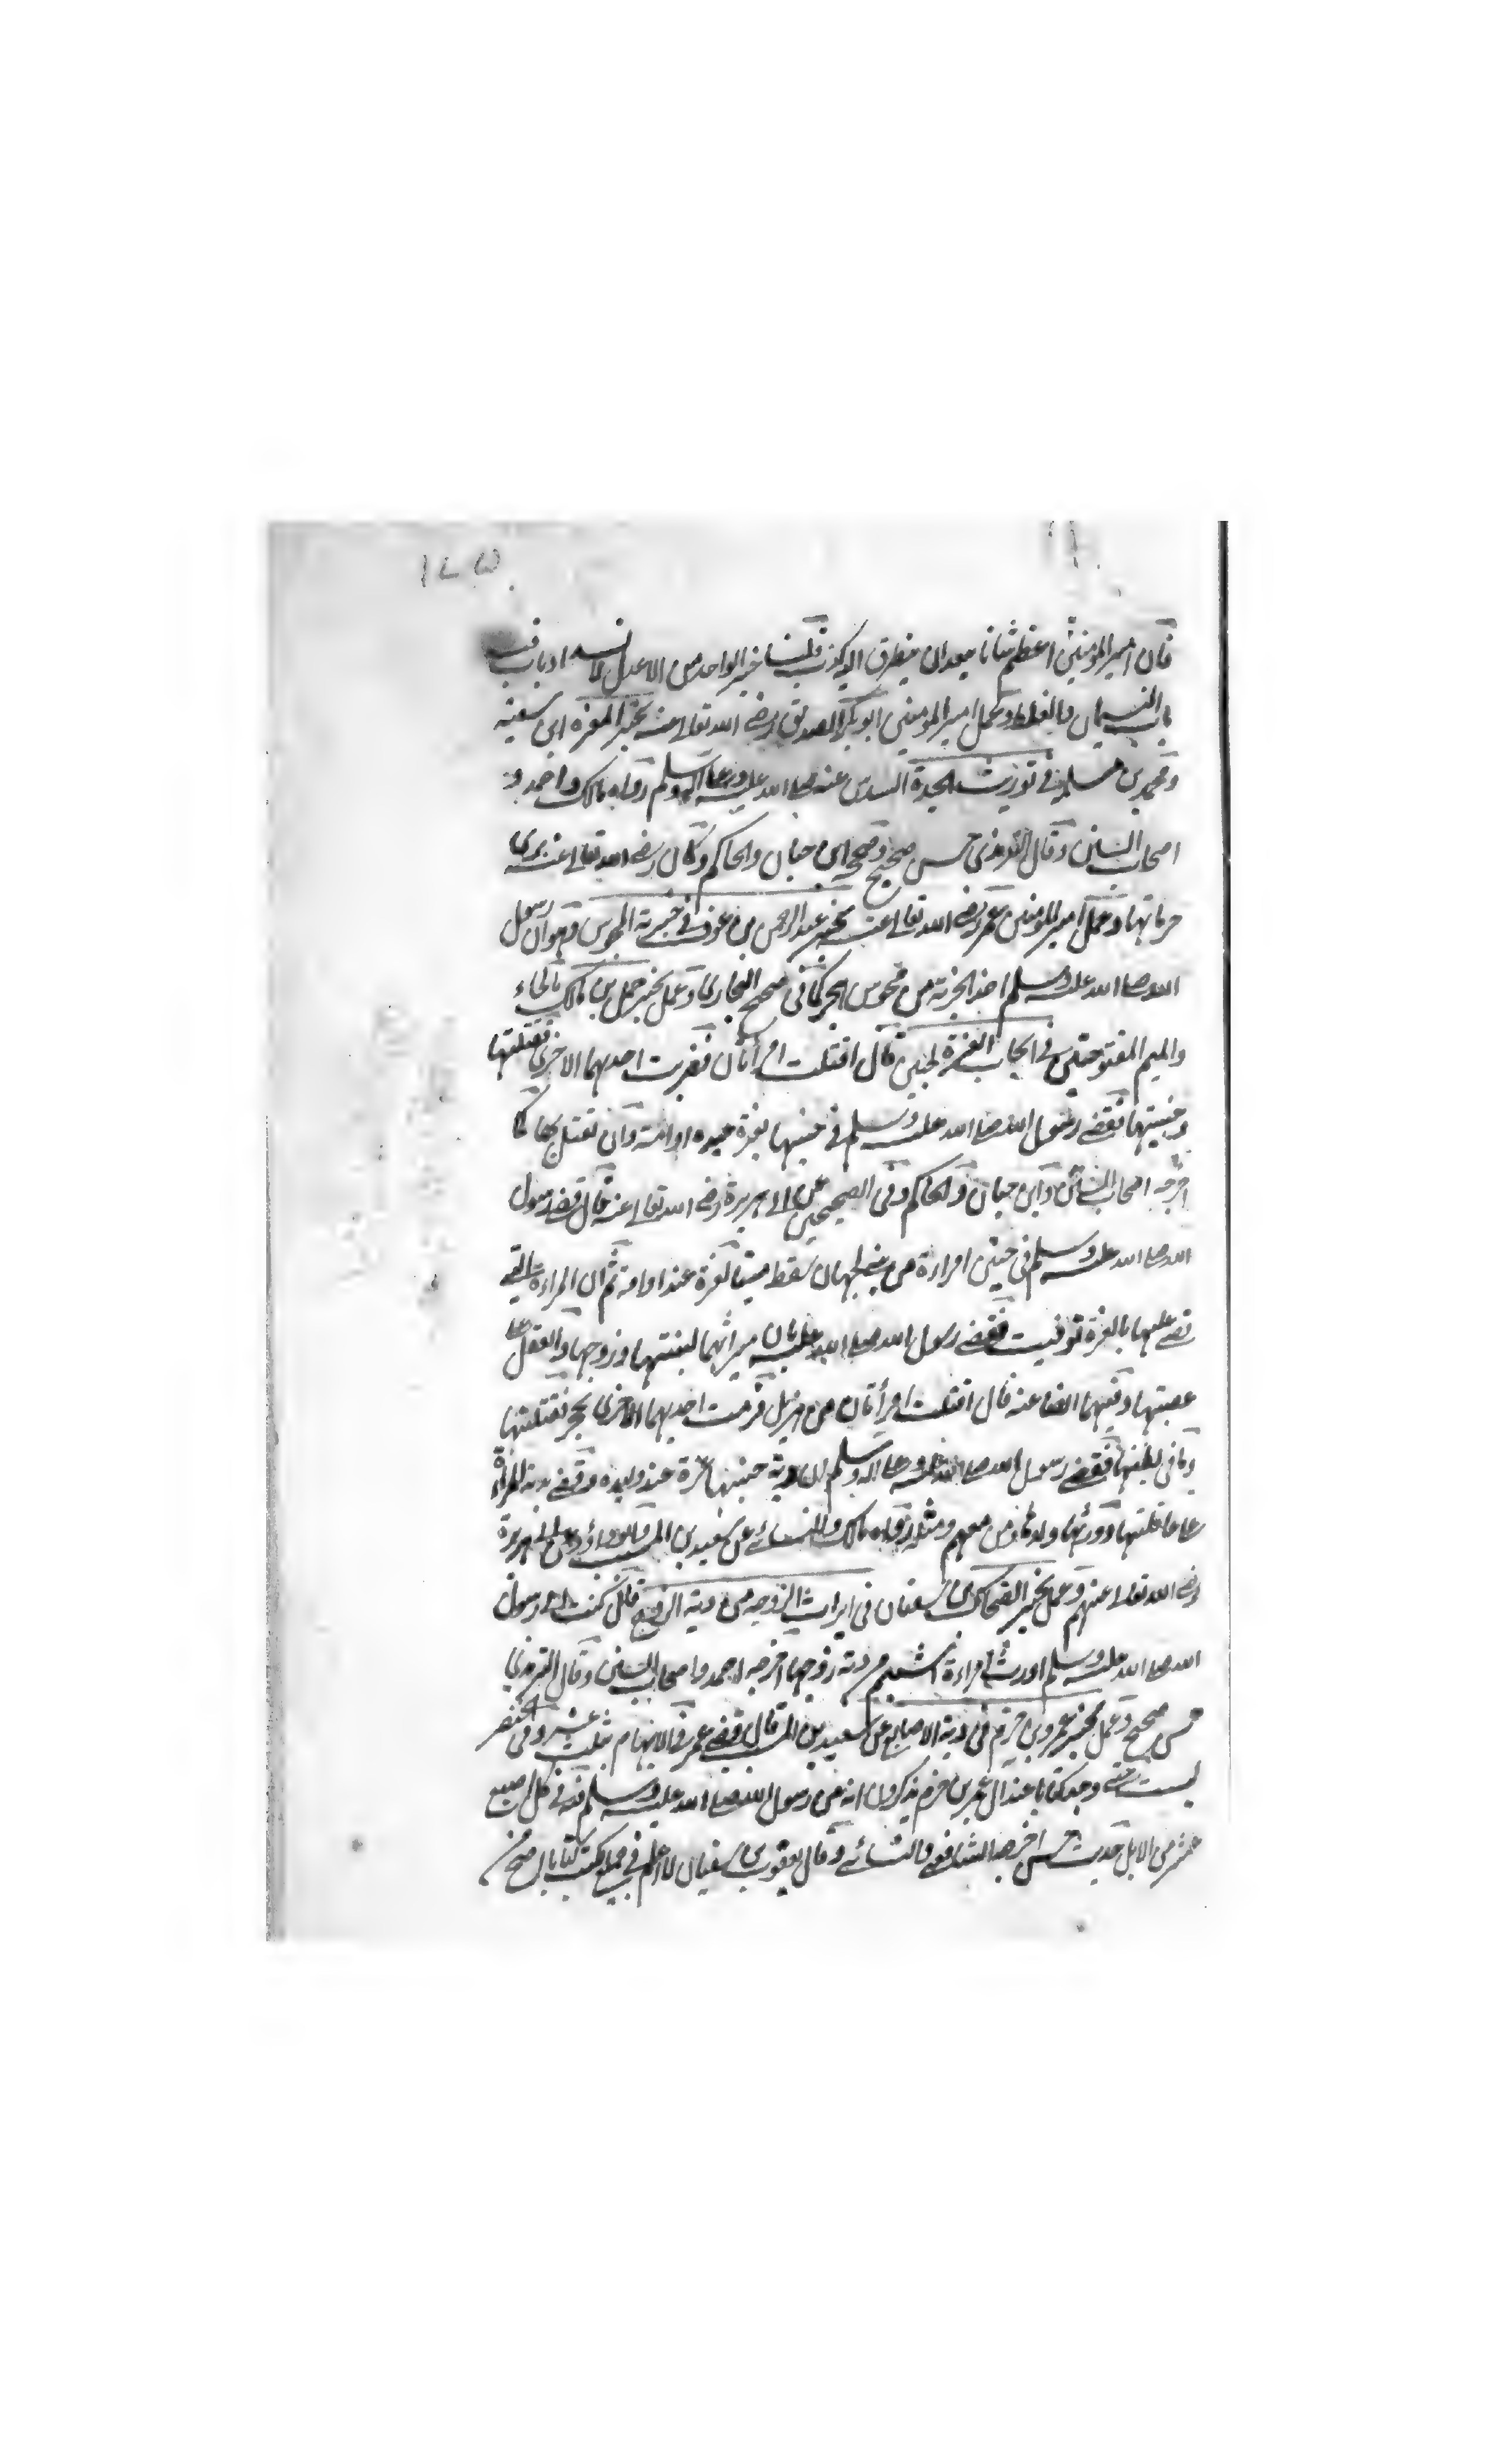 ١٧٥
فان امير المؤمنين اعظم شانا بعد ان يتطرق اليه كذب قلنا خبر الواحد من الاعدل
باب النسيان والغلط وعمل امير المؤمنين ابو بكر الصديق رضى الله تعالى عنه بخبر المغيرة ابن شعبة
ومحمد بن مسلمة فى توريث الجدة السدس عنه صلى الله عليه وعلى آله وسلم رواه مالك واحمد و
اصحاب السنن وقال الترمذى حسن صحيح وصححه ابن حبان والحاكم وكان رضى الله تعالى عنه يرى
حرمانها وعمل امير المؤمنين عمر رضى الله تعالى عنه بخبر عبد الرحمن بن عوف فى جزية المجوس وهو ان رسول
الله صلى الله عليه وسلم اخذ الجزية من مجوس هجر كما فى صحيح البخارى وعمل بخبر حمل بن مالك بالحاء
والميم المفتوحتين فى ايجاب الغرة لجنين قال اقتتلت امرأتان فضربت احدهما الاخرى فقتلتها
وجنينها فقضى رسول الله صلى الله عليه وسلم فى جنينها بغرة عبد او امة وان تقتل بها كما
اخرجه اصحاب السنن وابن حبان والحاكم وفى الصحيحين عن ابى هريرة رضى الله تعالى عنه قال قضى رسول
الله صلى الله عليه وسلم فى جنين امراءة من بنى لحيان سقط ميتا لغرة عبد او امة ثم ان المراءة التى
قضى عليها بالغرة توفيت فقضى رسول الله صلى الله عليه بان ميراثها لبنتها وزوجها والعقل على
عصبتها وفيهما ايضا عنه قال اقتتلت امرأتان من هذيل فرمت احديهما الاخرى بحجر فقتلتها
وما فى بطنها فقضى رسول الله صلى الله عليه وعلى آله وسلم ان دية جنينها غرة عبد وليدة وقضى بدية المرأة
على عاقلتها وورثها ولدها ومن معهم ومثله رواه مالك والنسائى عن سعيد بن المسيب وابو داود عن ابى هريرة
رضى الله تعالى عنهم وعمل بخبر الضحاك بن سفيان فى ايراث الزوجة من دية الزوج قال كتب الى رسول
الله صلى الله عليه وسلم اورث امراءة اشيم من دية زوجها اخرجه احمد واصحاب السنن وقال الترمذى
حسن صحيح وعمل بخبر عمرو بن حزم فى دية الاصابع عن سعيد بن المسيب قال قضى عمر فى الابهام بثلث عشر وفى الخنصر
بست حتى وجد كتابا عند آل عمرو بن حزم يذكرون انه من رسول الله صلى الله عليه وسلم فيه فى كل اصبع
عشر من الابل حديث حسن اخرجه الشافعى والنسائى وقال يعقوب بن سفيان لا اعلم فى جميع الكتب كتابا اصح من